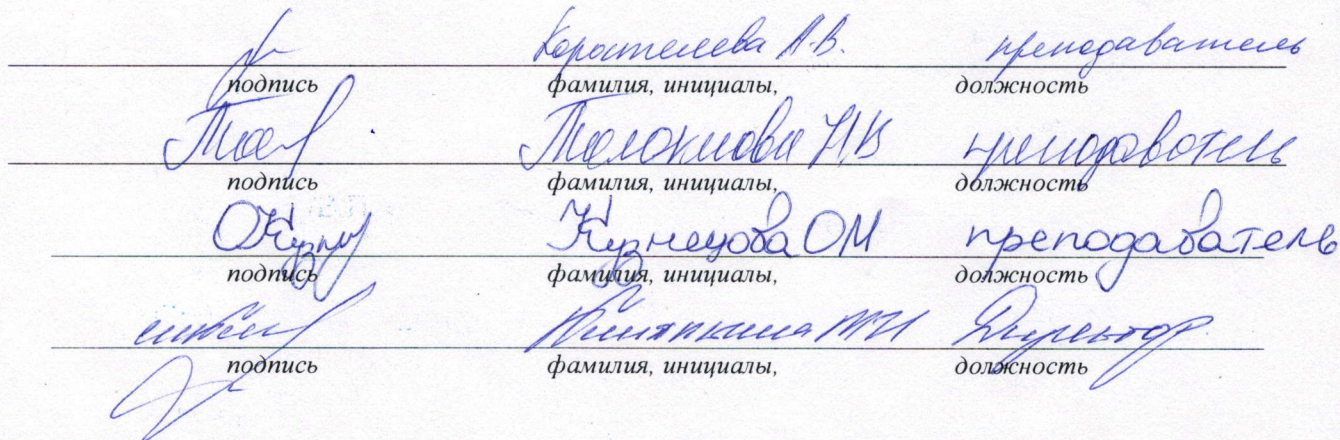 Коростелева А.В. преподаватель
подпись фамилия, инициалы, должность
Толокнова Н.В преподаватель
подпись фамилия, инициалы, должность
ОКузну Кузнецова ОМ преподаватель
подпись фамилия, инициалы, должность
Директор
подпись фамилия, инициалы, должность